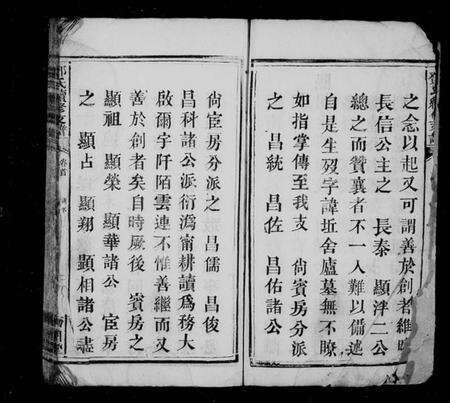 之念以起又可謂善於創者維時
長信公主之　長泰　顯泮二公
總之而贊襄者不一人難以僃述
自是生歿字諱坵舍廬墓無不瞭
如指掌傳至我支　尙賓房分派
之　昌統　昌佐　昌佑諸公
尙宦房分派之　昌儒　昌俊
昌科諸公派衍潙甯耕讀爲務大
啟爾宇阡陌雲連不惟善繼而又
善於創者矣自時厥後　賓房之
顯祖　顯榮　顯華諸公　宦房
之　顯占　顯翔　顯相諸公盡
鄧氏續修支譜
卷首